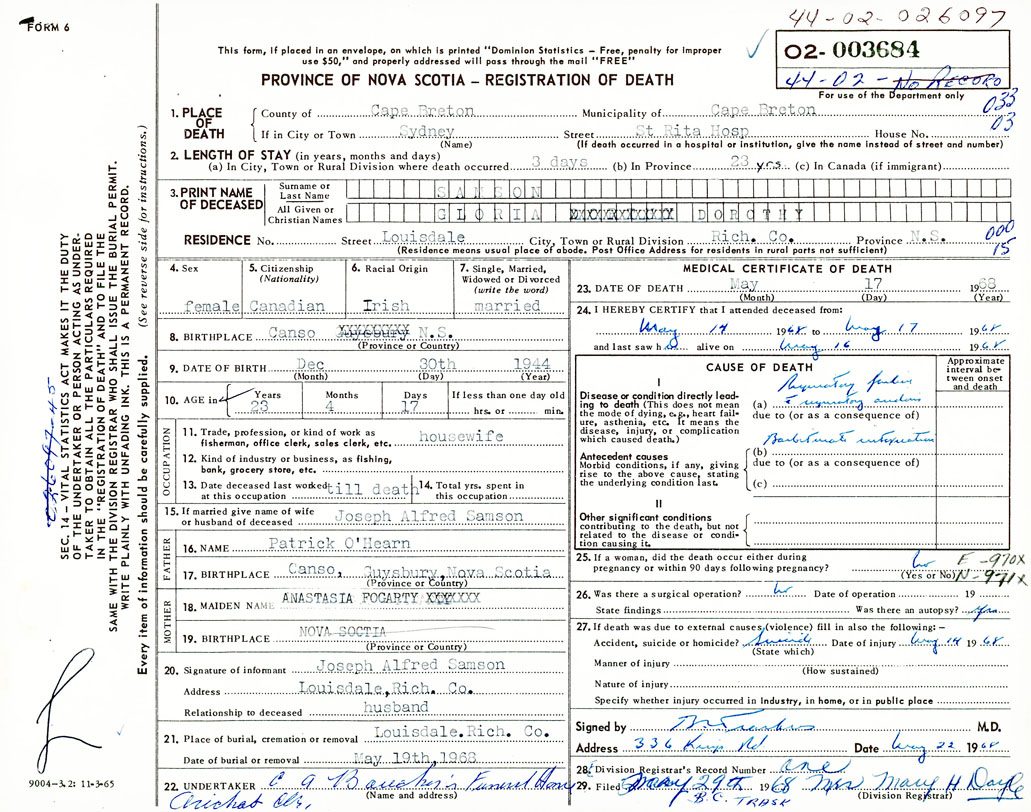 FORM 6
44-02-026097
02- 003684
44-02 - No RECORD
For use of the Department only
This form, if placed in an envelope, on which is printed "Dominion Statistics – Free, penalty for improper
use $50," and properly addressed will pass through the mail "FREE"
PROVINCE OF NOVA SCOTIA – REGISTRATION OF DEATH
033
03
1. PLACE OF DEATH
County of Cape Breton Municipality of Cape Breton
If in City or Town Sydney Street St Rita Hosp House No.
(Name) (If death occurred in a hospital or institution, give the name instead of street and number)
2. LENGTH OF STAY (in years, months and days)
(a) In City, Town or Rural Division where death occurred 3 days (b) In Province 23 yrs. (c) In Canada (if immigrant)
3. PRINT NAME OF DECEASED
Surname or Last Name SAMSON
All Given or Christian Names GLORIA XXXXXXXXXX DOROTHY
RESIDENCE No. Street Louisdale City, Town or Rural Division Rich. Co. Province N.S.
(Residence means usual place of abode. Post Office Address for residents in rural parts not sufficient)
000
15
4. Sex female
5. Citizenship (Nationality) Canadian
6. Racial Origin Irish
7. Single, Married, Widowed or Divorced (write the word) married
8. BIRTHPLACE Canso XXXXXXXX N.S.
(Province or Country)
9. DATE OF BIRTH Dec 30th 1944
(Month) (Day) (Year)
10. AGE in Years 23 Months 4 Days 17 If less than one day old hrs. or min.
OCCUPATION
11. Trade, profession, or kind of work as fisherman, office clerk, sales clerk, etc. housewife
12. Kind of industry or business, as fishing, bank, grocery store, etc.
13. Date deceased last worked at this occupation till death
14. Total yrs. spent in this occupation
15. If married give name of wife or husband of deceased Joseph Alfred Samson
FATHER
16. NAME Patrick O'Hearn
17. BIRTHPLACE Canso, Guysbury, Nova Scotia
(Province or Country)
MOTHER
18. MAIDEN NAME ANASTASIA FOGARTY XXXXXXX
19. BIRTHPLACE NOVA SOCTIA
(Province or Country)
20. Signature of informant Joseph Alfred Samson
Address Louisdale, Rich. Co.
Relationship to deceased husband
21. Place of burial, cremation or removal Louisdale. Rich. Co.
Date of burial or removal May 19th, 1968
22. UNDERTAKER C A Boucher's Funeral Home
(Name and address)
Arichat
MEDICAL CERTIFICATE OF DEATH
23. DATE OF DEATH May 17 1968
(Month) (Day) (Year)
24. I HEREBY CERTIFY that I attended deceased from:
May 14 1968 to May 17 1968
and last saw h alive on May 16 1968
CAUSE OF DEATH
Approximate interval between onset and death
I
Disease or condition directly leading to death (This does not mean the mode of dying, e.g., heart failure, asthenia, etc. It means the disease, injury, or complication which caused death.)
(a) Respiratory failure
due to (or as a consequence of)
Barbiturate intoxication
Antecedent causes
Morbid conditions, if any, giving rise to the above cause, stating the underlying condition last.
(b)
due to (or as a consequence of)
(c)
II
Other significant conditions contributing to the death, but not related to the disease or condition causing it.
25. If a woman, did the death occur either during pregnancy or within 90 days following pregnancy? No
(Yes or No)
E -970X
N-971X
26. Was there a surgical operation? No Date of operation 19
State findings Was there an autopsy? Yes
27. If death was due to external causes (violence) fill in also the following: –
Accident, suicide or homicide? Suicide Date of injury May 14 1968
(State which)
Manner of injury
(How sustained)
Nature of injury
Specify whether injury occurred in Industry, in home, or in public place
Signed by M.D.
Address 336 Kings Rd Date May 22 1968
28. Division Registrar's Record Number one
29. Filed May 29th 1968 Mrs Mary H Doyle
(Division Registrar)
B.C. TRASK
SEC. 14 – VITAL STATISTICS ACT MAKES IT THE DUTY
OF THE UNDERTAKER OR PERSON ACTING AS UNDER-
TAKER TO OBTAIN ALL THE PARTICULARS REQUIRED
IN THE "REGISTRATION OF DEATH" AND TO FILE THE
SAME WITH THE DIVISION REGISTRAR WHO SHALL ISSUE THE BURIAL PERMIT.
WRITE PLAINLY WITH UNFADING INK. THIS IS A PERMANENT RECORD.
Every item of information should be carefully supplied. (See reverse side for instructions.)
9004-3.2: 11-3-65